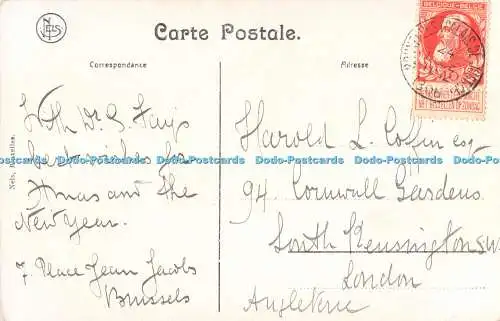 Carte Postale.
Correspondance
Adresse
BELGIQUE-BELGIË
With Dr. G. Fay's
best wishes for
Xmas and the
New Year.
7 Place Jean Jacobs
Brussels
Nels, Bruxelles.
Harold L. Coffin esq
94 Cornwall Gardens
South Kensington SW
London
Angleterre
Dodo-Postcards Dodo-Postcards Dodo-Postcards Dodo-Postcards Dodo-Postcards